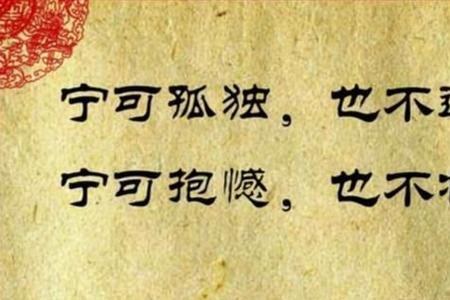 宁可孤独，也不
宁可抱憾，也不